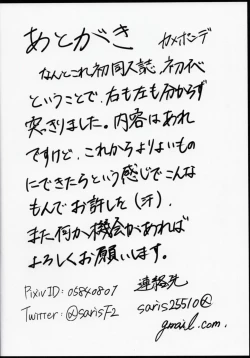 あとがき カメホンデ
なんとこれ初同人誌、初イベ
ということで、右も左も分からず
突っきりました。内容はあれ
ですけど、これからよりよいもの
にできたらという感じでこんな
もんでお許しを(汗)。
また何か機会があれば
よろしくお願いします。
連絡先
PixivID: 05840807
Twitter: @sarisF2
saris25510@
gmail.com.